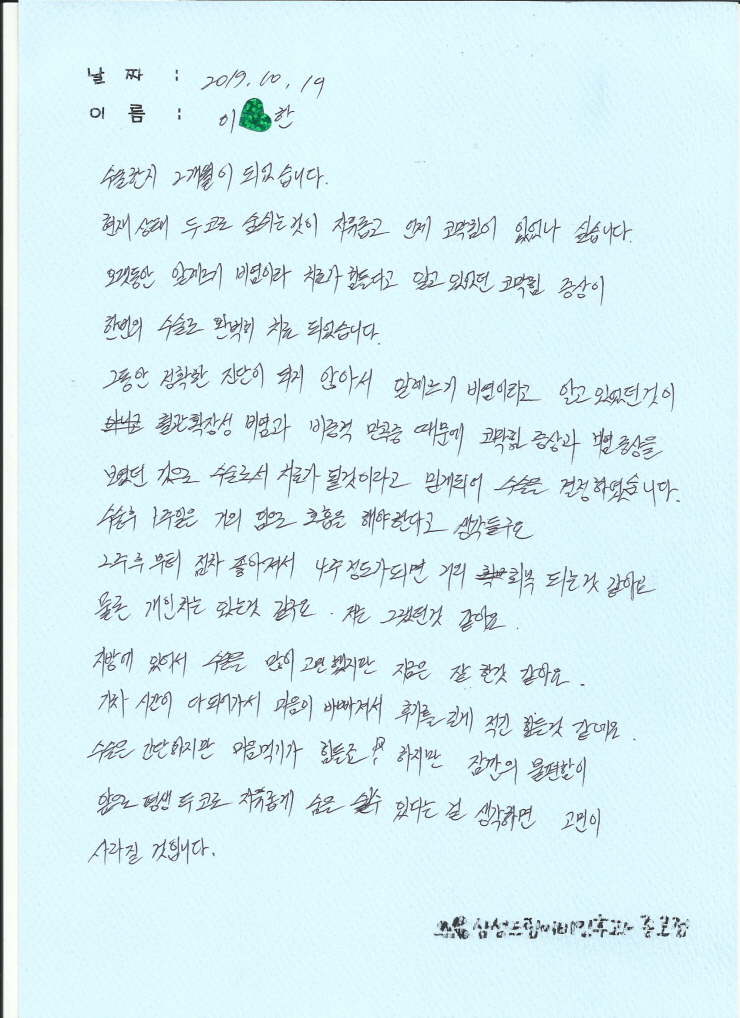 날 짜 : 2019. 10. 19
이 름 : 이 한
수술한지 2개월이 되었습니다.
현재 상태 두 코로 숨쉬는것이 자유롭고 언제 코막힘이 있었나 싶습니다.
오랫동안 알레르기 비염이라 치료가 힘들다고 알고 있었던 코막힘 증상이
한번의 수술로 완벽히 치료 되었습니다.
그동안 정확한 진단이 되지 않아서 알레르기 비염이라고 알고 있었던것이
혈관확장성 비염과 비중격 만곡증 때문에 코막힘 증상과 비염증상을
보였던 것으로 수술로서 치료가 될것이라고 믿게되어 수술을 결정하였습니다.
수술후 1주일은 거의 입으로 호흡을 해야한다고 생각들구요
2주후 부터 점차 좋아져서 4주정도가되면 거의 회복 되는것 같아요
물론 개인차는 있는것 같구요. 저는 그랬던것 같아요.
지방에 있어서 수술을 많이 고민 했지만 지금은 잘 한것 같아요.
기차 시간이 다되어가서 마음이 바빠져서 후기를 길게 적긴 힘들것 같네요.
수술은 간단하지만 마음먹기가 힘들죠 하지만 잠깐의 불편함이
앞으로 평생 두코로 자유롭게 숨을 쉴수 있다는 걸 생각하면 고민이
사라질 것입니다.
삼성드림이비인후과 종로점